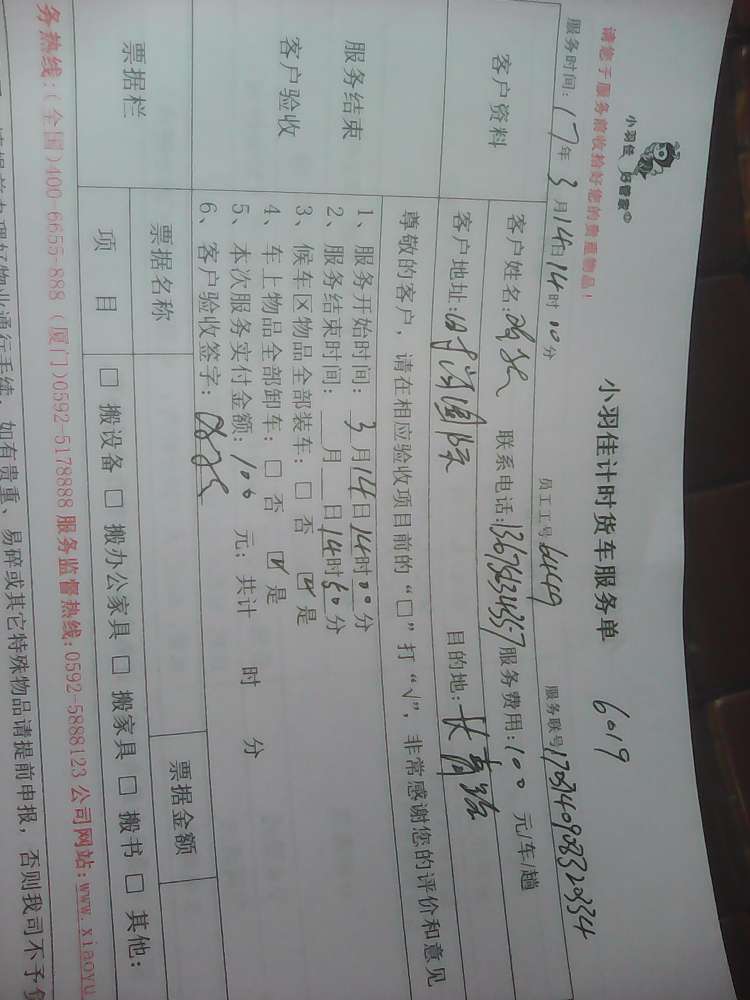 小羽佳 好管家®
请您于服务前收拾好您的贵重物品！
小羽佳计时货车服务单 6019
服务时间：17年3月14日14时10分 员工工号：6449 服务联号1703140908320334
客户资料
客户姓名： 联系电话：13678234357 服务费用：100 元/车/趟
客户地址： 目的地：长青路
尊敬的客户，请在相应验收项目前的“□”打“√”，非常感谢您的评价和意见
服务结束
客户验收
1、服务开始时间：3月14日14时00分
2、服务结束时间：__月__日14时50分
3、候车区物品全部装车：□ 否 ☑ 是
4、车上物品全部卸车：□ 否 ☑ 是
5、本次服务实付金额：100 元；共计 时 分
6、客户验收签字：
票据栏
票据名称 票据金额
项 目 □ 搬设备 □ 搬办公家具 □ 搬家具 □ 搬书 □ 其他：
务热线：(全国)400-6655-888 (厦门)0592-5178888 服务监督热线：0592-5888123 公司网站：www.xiaoyu
请提前办理好物业通行手续，如有贵重、易碎或其它特殊物品请提前申报，否则我司不予